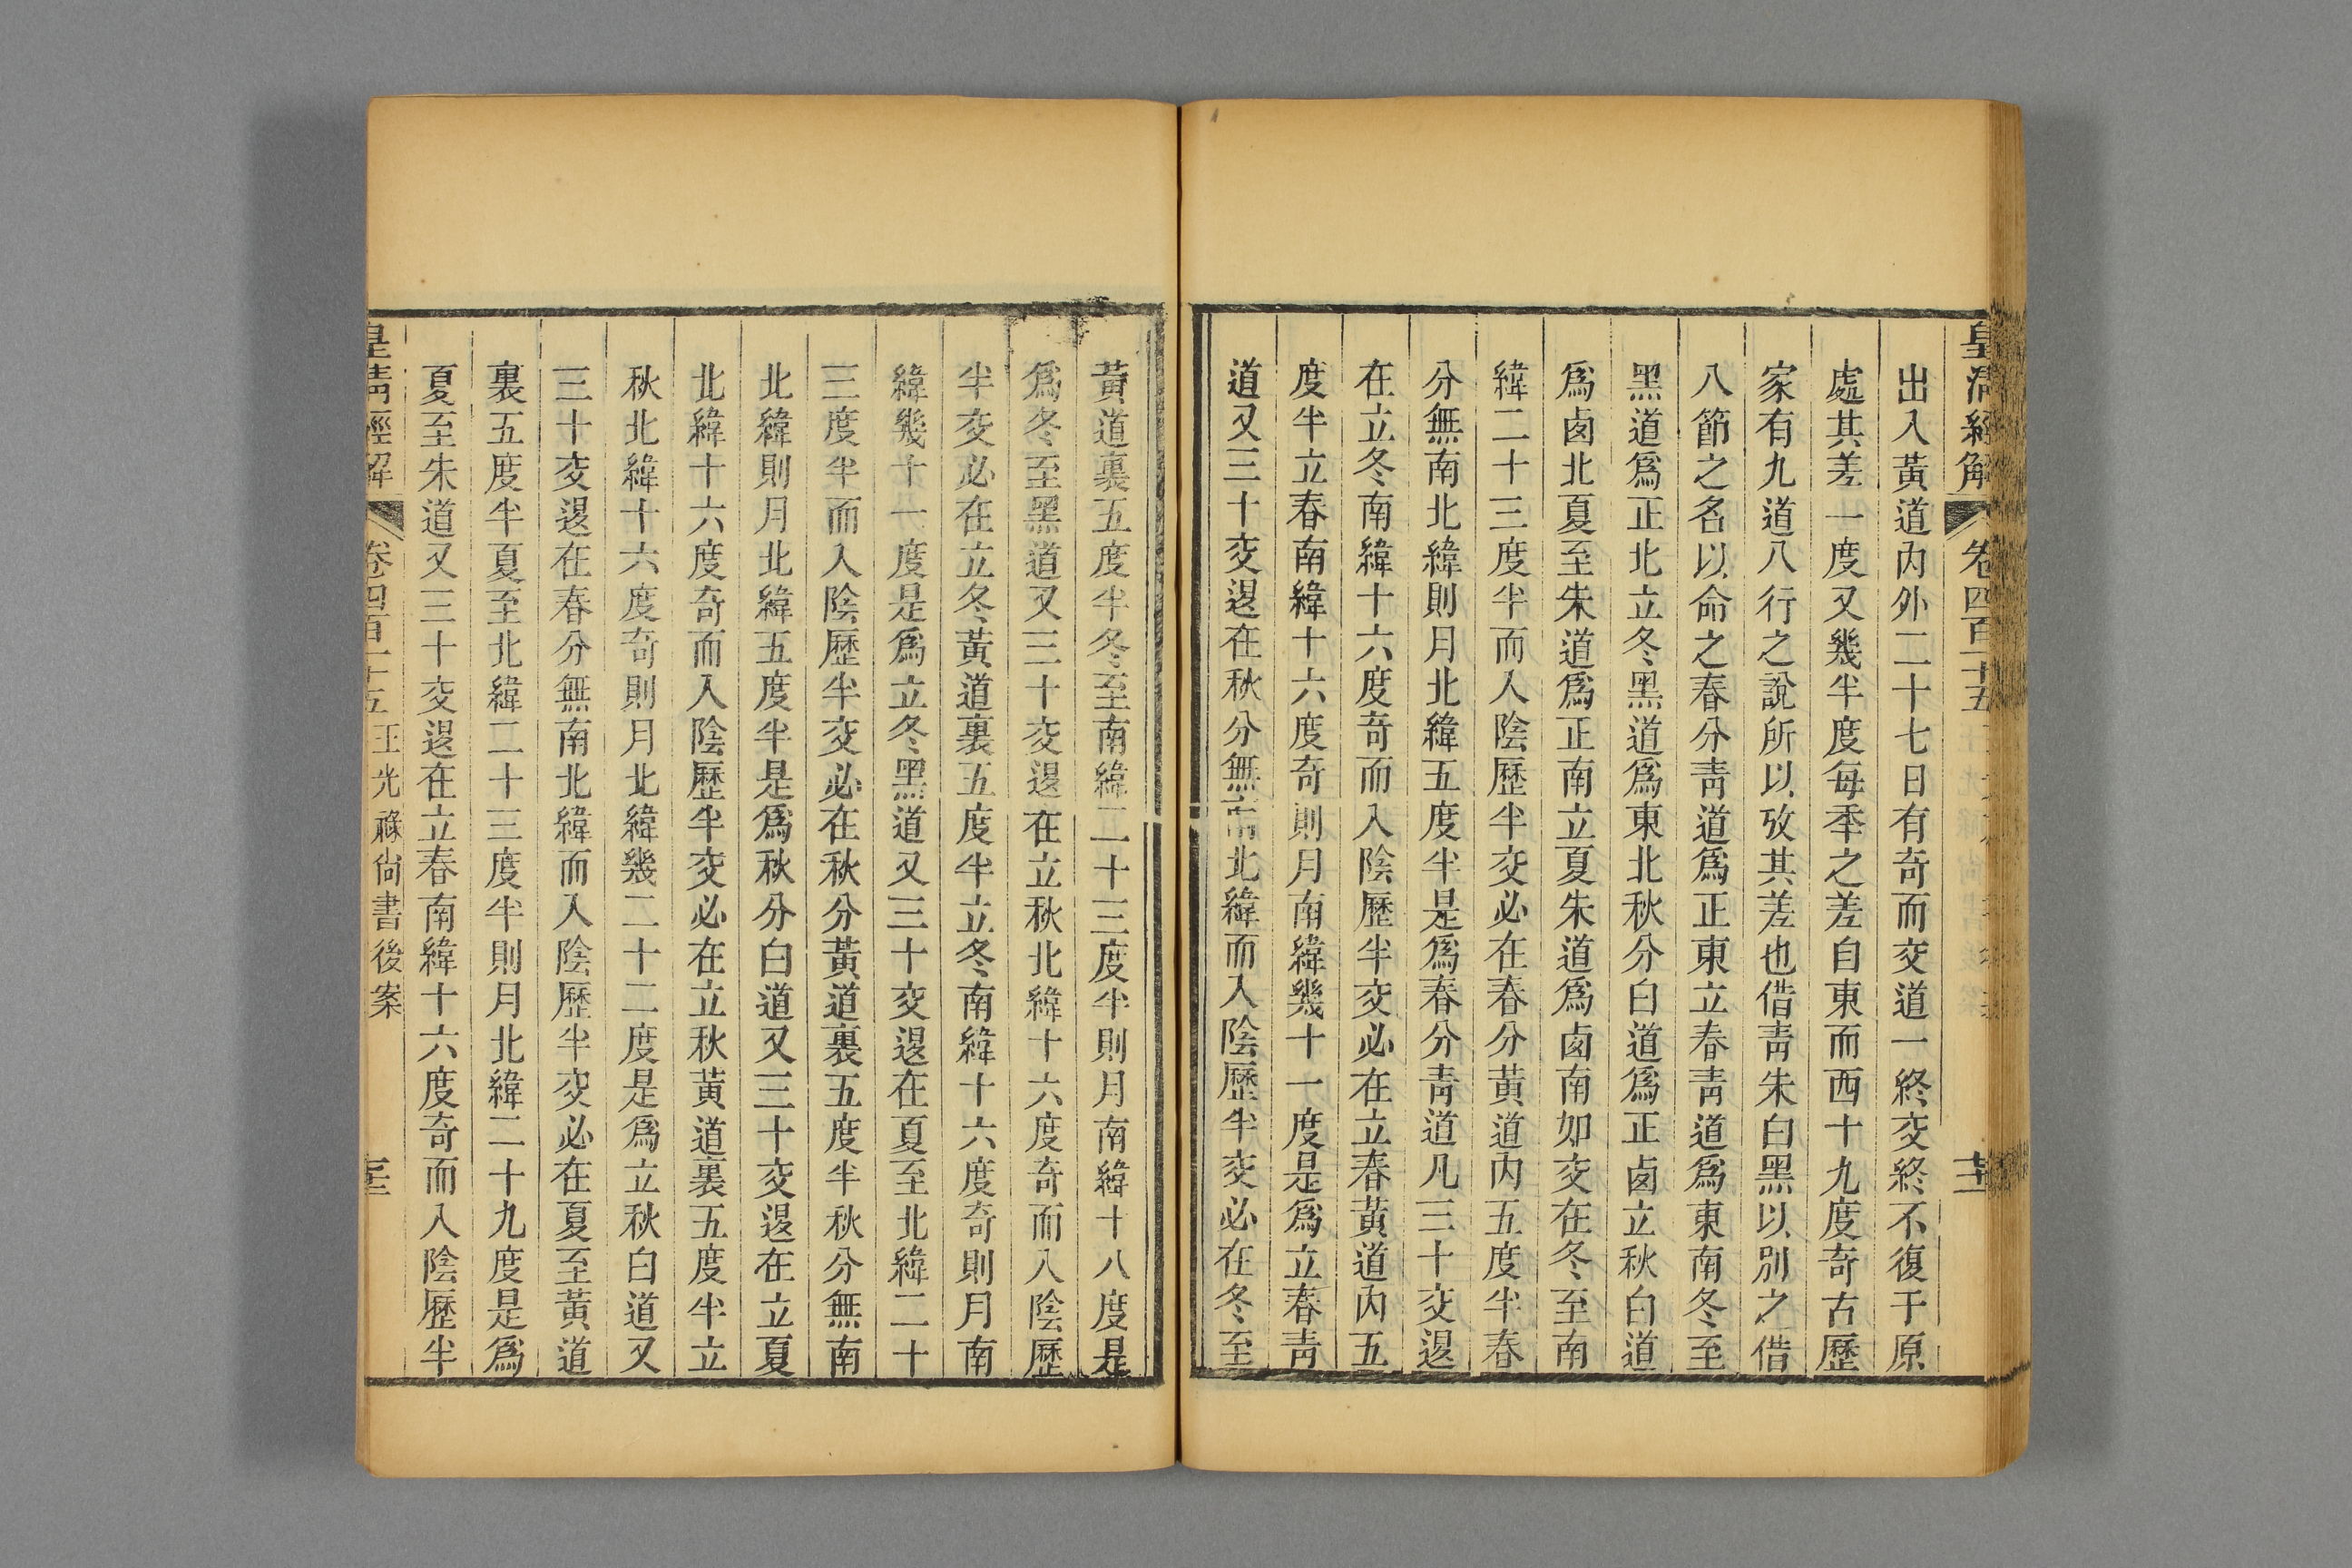 皇清經解 卷四百二十五
出入黃道內外二十七日有奇而交道一終交終不復于原
處其差一度又幾半度每季之差自東而西十九度奇古歷
家有九道八行之說所以攷其差也借靑朱白黑以別之借
八節之名以命之春分靑道爲正東立春靑道爲東南冬至
黑道爲正北立冬黑道爲東北秋分白道爲正卤立秋白道
爲卤北夏至朱道爲正南立夏朱道爲卤南如交在冬至南
緯二十三度半而入陰歷半交必在春分黃道內五度半春
分無南北緯則月北緯五度半是爲春分靑道凡三十交退
在立冬南緯十六度奇而入陰歷半交必在立春黃道內五
度半立春南緯十六度奇則月南緯幾十一度是爲立春靑
道又三十交退在秋分無南北緯而入陰歷半交必在冬至
黃道裏五度半冬至南緯二十三度半則月南緯十八度是
爲冬至黑道又三十交退在立秋北緯十六度奇而入陰歷
半交必在立冬黃道裏五度半立冬南緯十六度奇則月南
緯幾十一度是爲立冬黑道又三十交退在夏至北緯二十
三度半而入陰歷半交必在秋分黃道裏五度半秋分無南
北緯則月北緯五度半是爲秋分白道又三十交退在立夏
北緯十六度奇而入陰歷半交必在立秋黃道裏五度半立
秋北緯十六度奇則月北緯幾二十二度是爲立秋白道又
三十交退在春分無南北緯而入陰歷半交必在夏至黃道
裏五度半夏至北緯二十三度半則月北緯二十九度是爲
夏至朱道又三十交退在立春南緯十六度奇而入陰歷半
皇清經解 卷四百二十五 王光祿尙書後案